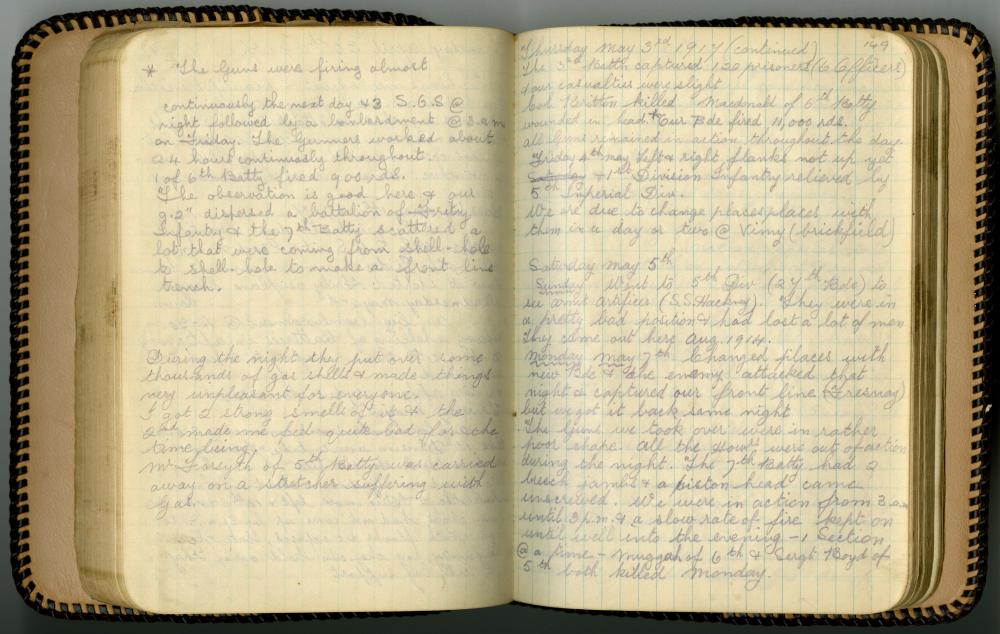 * The Guns were firing almost
continuously the next day & 3 S.G.S @
night followed by a bombardment @ 3.a.m
on Friday. The Gunners worked about
24 hours continuously throughout.
1 of 6th Batty fired 900 rds.
The observation is good here & our
9.2" dispersed a battalion of Fritz
Infantry & the 7th Batty scattered a
lot that were coming from shell-hole
to shell-hole to make a front line
trench.
During the night they put over some
thousands of gas shells & made things
very unpleasant for everyone.
I got 2 strong smells of it & the
2nd made me feel quite bad for the
time being.
Mr Forsyth of 5th Batty was carried
away on a stretcher suffering with
Gas.
149
Thursday May 3rd 1917 (continued)
The 3rd Batth captured 120 prisoners (6 Officers)
& our casualties were slight
Britton killed. Macdonald of 6th Batty
wounded in head. * Our Bde fired 11,000 rds.
all Guns remained in action throughout the day.
Friday 4th May Left & right flanks not up yet
Saturday & 1st Division Infantry relieved by
5th Imperial Div.
We are due to change places places with
them in a day or two @ Vimy (brickfield)
Saturday May 5th
Sunday Went to 5th Div (27th Bde) to
see armt artificer (S.S. Hackney). They were in
a pretty bad position & had lost a lot of men
They came out here Aug. 1914.
Monday May 7th Changed places with
new Bde & the enemy attacked that
night & captured our front line (Fresnoy)
but we got it back same night
The Guns we took over were in rather
poor shape. All the Hows were out of action
during the night. The 7th Batty had 2
breech jambs & a piston head came
unscrewed. We were in action from 3 a.m
until 3 p.m. & a slow rate of fire kept on
until well into the evening - 1 Section
@ a time - Muggah of 6th & Sergt Boyd of
5th both killed Monday.